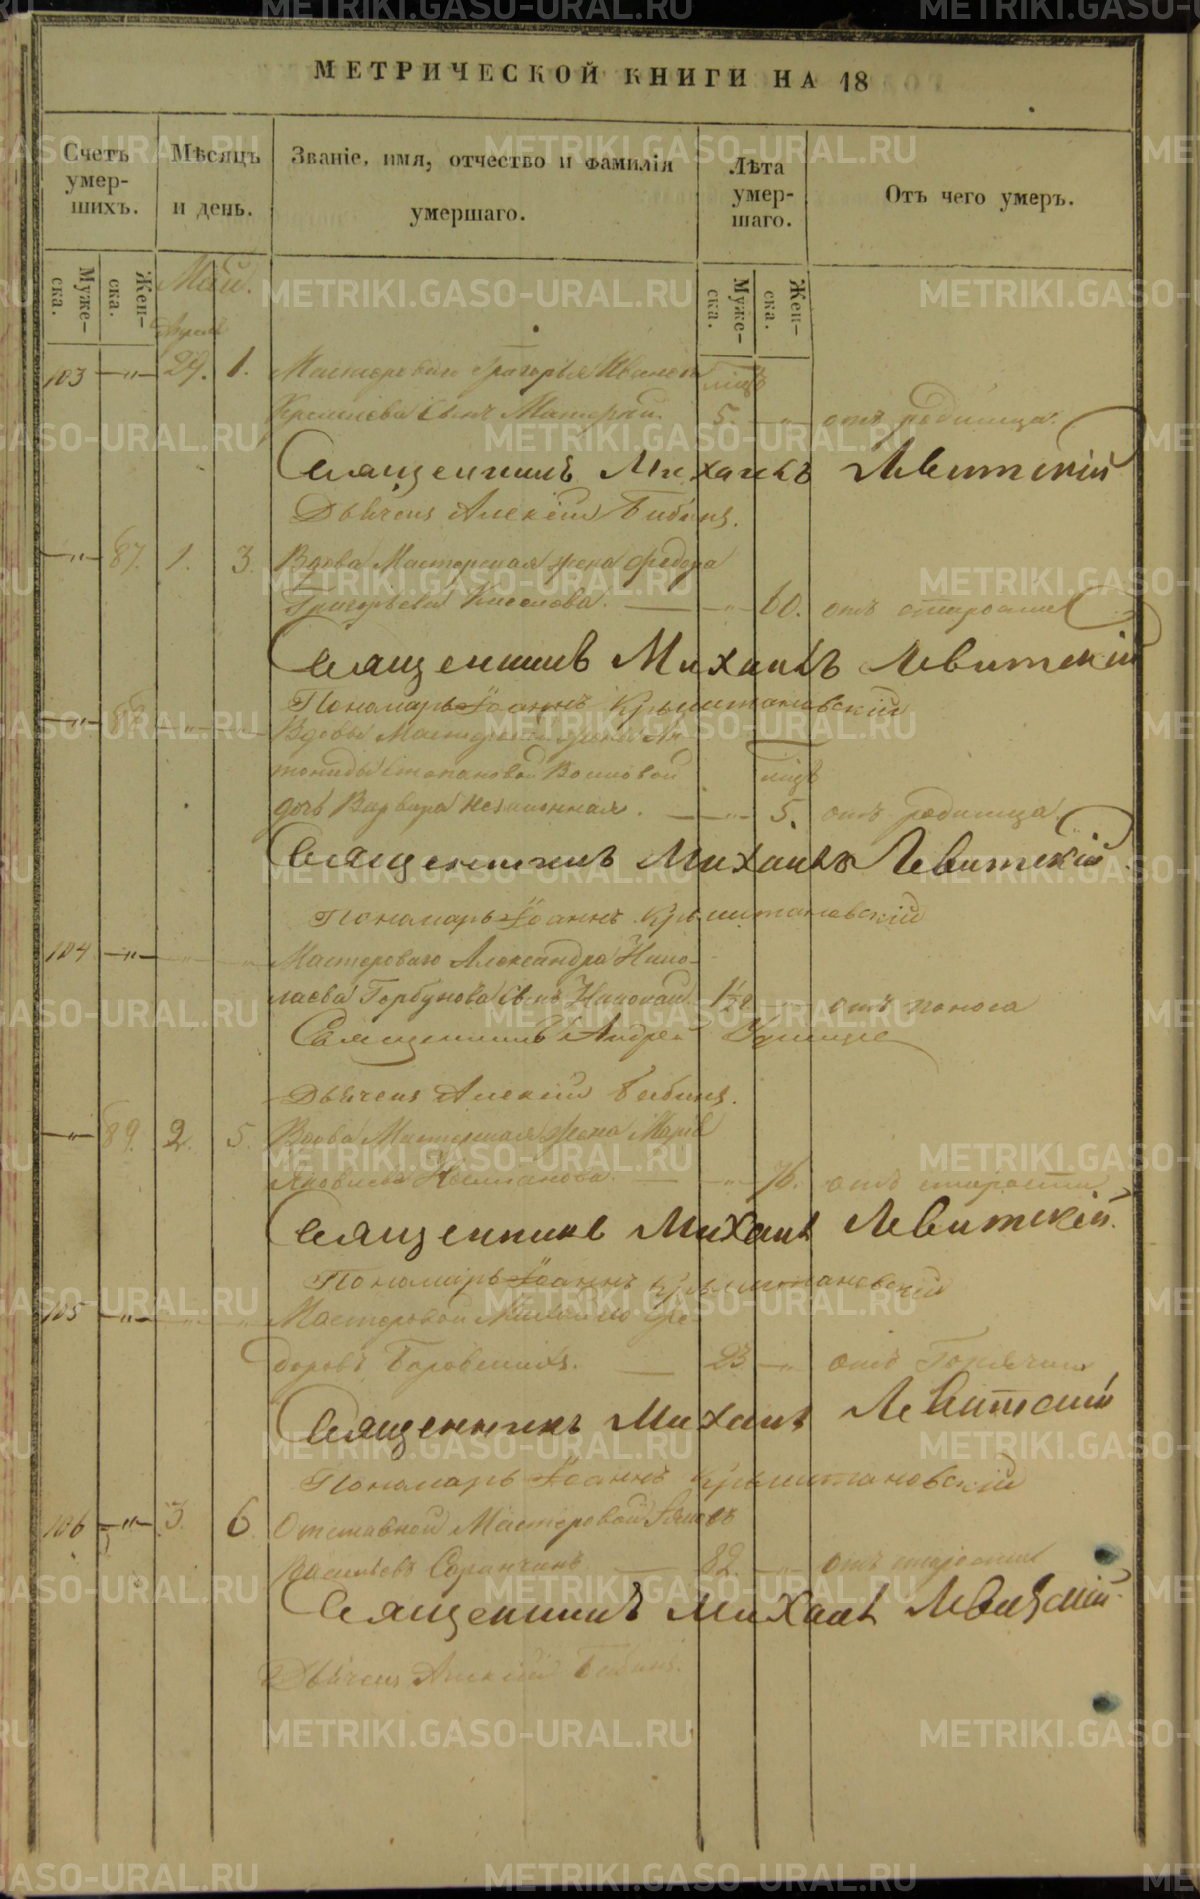 МЕТРИЧЕСКОЙ КНИГИ НА 18
Счетъ умер-шихъ.
Мѣсяцъ и день.
Званіе, имя, отчество и фамилія умершаго.
Лѣта умер-шаго.
Отъ чего умеръ.
Муже-ска.
Жен-ска.
Муже-ска.
Жен-ска.
Май.
Апрель
103 —„— 29. 1. Мастероваго Григорья Иванова
сынъ 5. —„— отъ родимца.
Священникъ Михаилъ Левитскій
Дьячекъ Алексій Бибинъ.
—„— 87. 1. 3. Вдова Мастерская жена Федора
Григорьева Киселева. —„— 60. отъ старости
Священникъ Михаилъ Левитскій
Пономарь Іоаннъ Крыштановскій
—„— 88. —„— —„— Вдовы Мастерской жены Ан
тониды Степановой
дочь Варвара незаконная. —„— 5. отъ родимца.
Священникъ Михаилъ Левитскій
Пономарь Іоаннъ Крыштановскій
104 —„— —„— —„— Мастероваго Александра Нико-
лаева Горбунова сынъ Николай 1 1/2 —„— отъ поноса
Священникъ Андрей
Дьячекъ Алексій Бибинъ.
—„— 89. 2. 5. Вдова Мастерская жена
Яковлева —„— 76. отъ старости
Священникъ Михаилъ Левитскій.
Пономарь Іоаннъ Крыштановскій
105 —„— —„— —„— Мастеровой Михайло Фе-
доровъ 23 —„— отъ Горячки
Священникъ Михаилъ Левитскій
Пономарь Іоаннъ Крыштановскій
106 —„— 3. 6. Отставной Мастеровой Яковъ
Васильевъ 82. —„— отъ старости
Священникъ Михаилъ Левитскій.
Дьячекъ Алексій Бибинъ.
METRIKI.GASO-URAL.RU